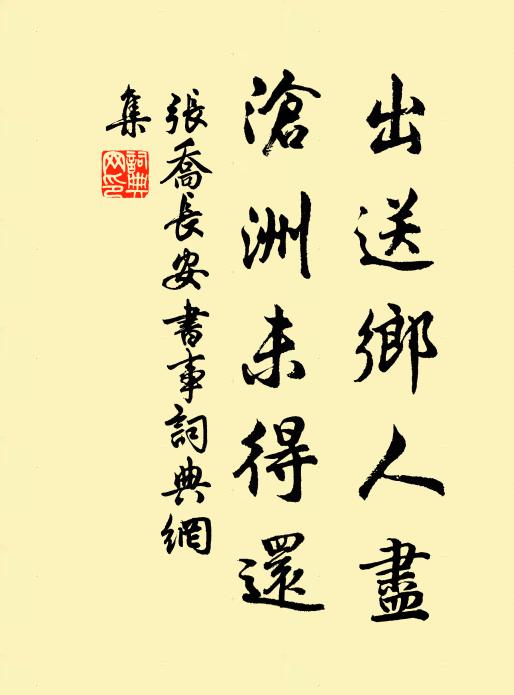 出送鄉人盡
滄洲未得還
張喬長安書事詞典網
集
詞典
网印